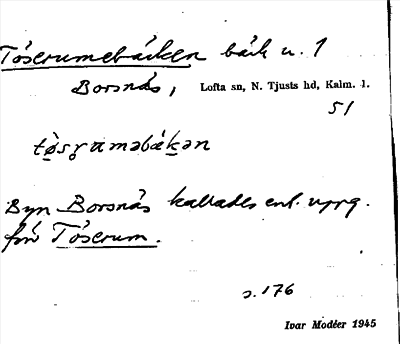 Töserumebäcken bäck u. 1
Borsnäs, Lofta sn, N. Tjusts hd, Kalm. l.
51
tø̀sramabǽkan
Byn Borsnäs kallades enl. uppg.
förr Töserum.
s. 176
Ivar Modéer 1945